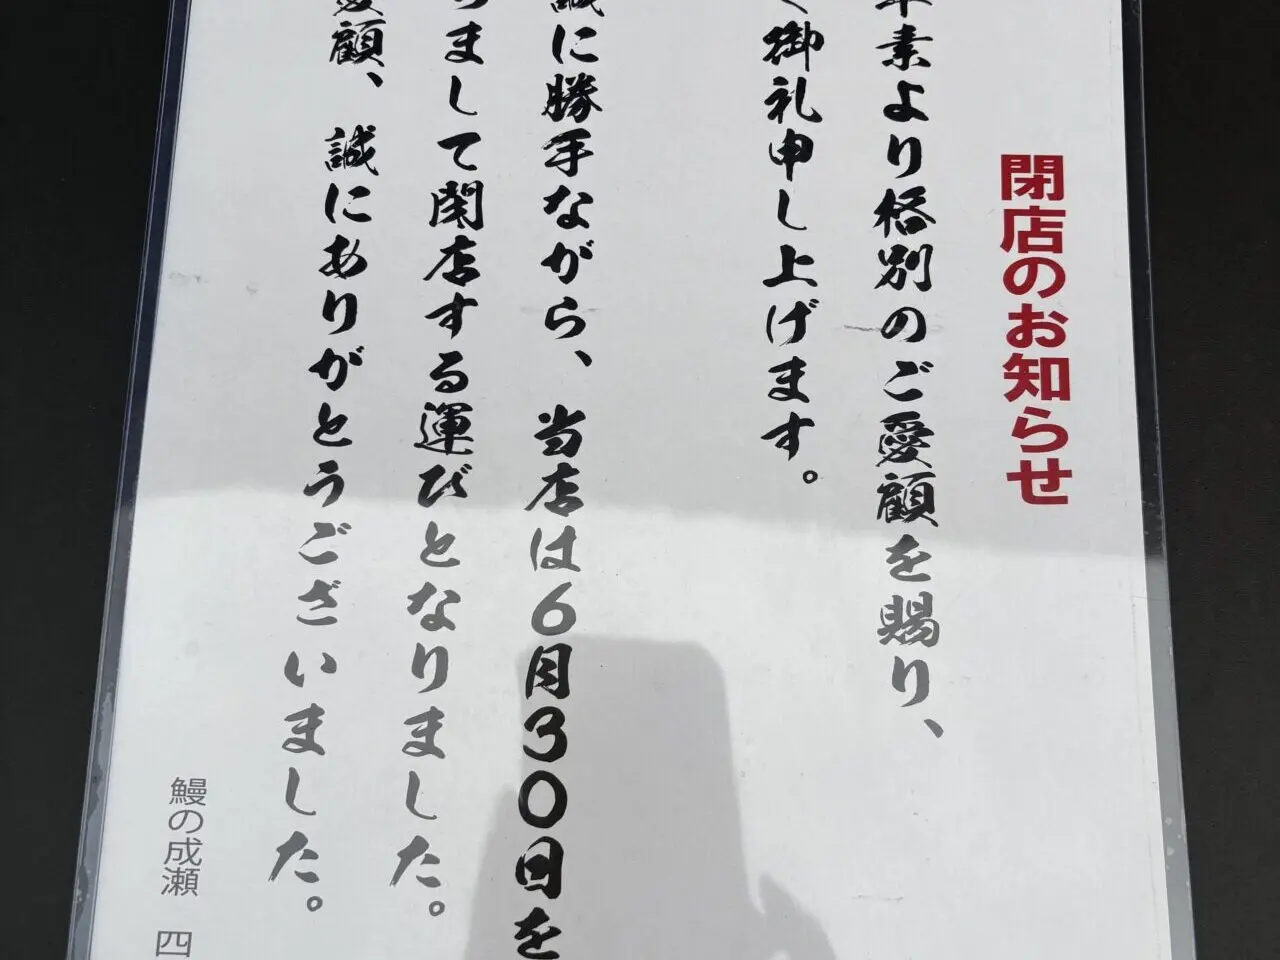 閉店のお知らせ
素より格別のご愛顧を賜り、
御礼申し上げます。
誠に勝手ながら、当店は６月３０日を
まして閉店する運びとなりました。
愛顧、誠にありがとうございました。
鰻の成瀬　四